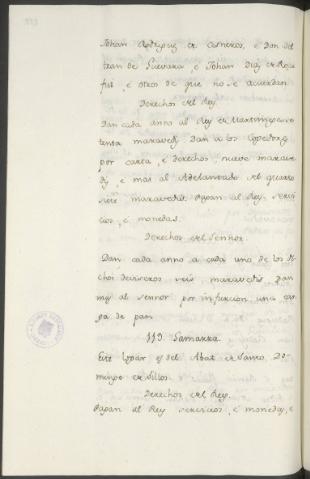 Johan Rodriguez de Cisneros, e Don Bel
tran de Guevara, e Johan Diaz de Roca
fui, e otros de que no se acuerdan
Derechos del Rey.
Dan cada anno al Rey de Martiniega
tenta maravedis. Dan a los Cojedores
por carta, e derechos, nueve marave
dis, e mas al Adelantado del quarto
siete maravedis. Pagan al Rey servi
cios, e monedas.
Derechos del Sennor.
Dan cada anno a cada uno de los di
chos deviseros seis maravedis, e dan
mas al sennor por infurcion una car
ga de pan.
113. Samarra.
Este logar es del Abat de Santo Do
mingo de Sillos.
Derechos del Rey.
Pagan al Rey servicios, e monedas, e